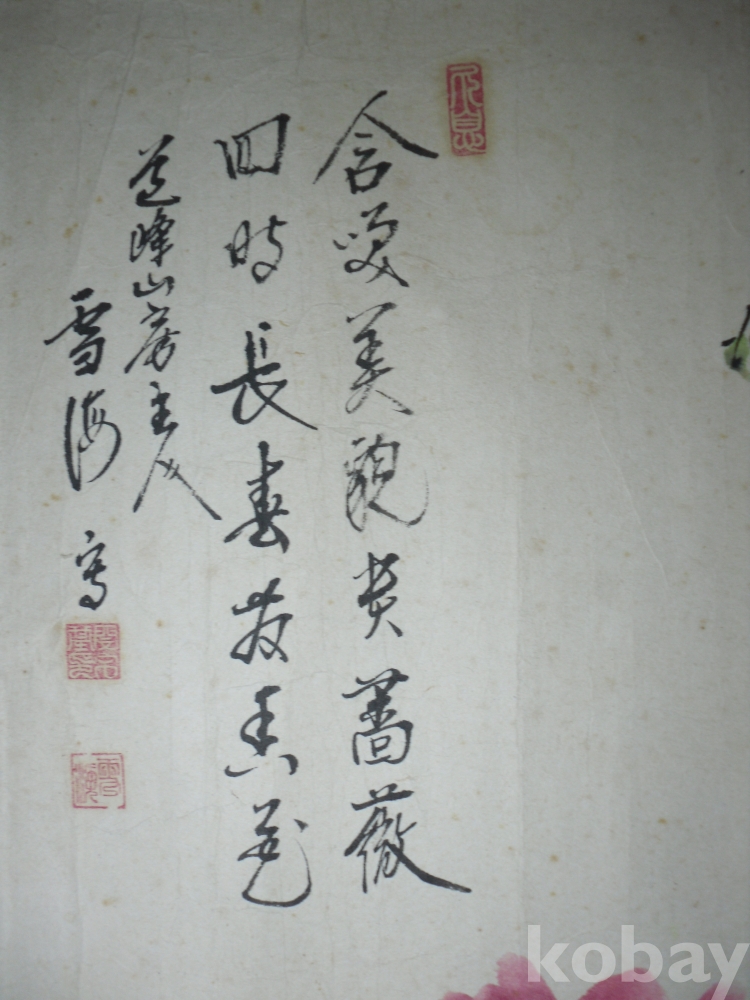 含笑美貌黄薔薇
四時長春發香花
道峰山房主人
雪海 寫
kobay